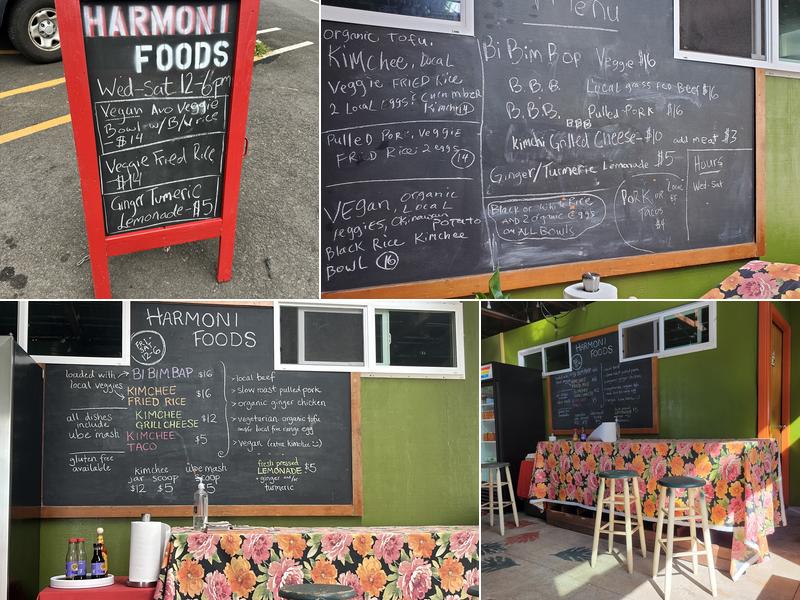 HARMONI
FOODS
Wed-Sat 12-6pm
Vegan Avo Veggie
Bowl w/B/W rice
$14
Veggie Fried Rice
$14
Ginger Tumeric
Lemonade-$5
Menu
organic Tofu,
Kimchee, Local
Veggie FRIED Rice
2 Local eggs & cucumber
Kimchi 14
Pulled Pork, Veggie
FRIED Rice: 2 eggs
14
Vegan, organic
Local
veggies, Okinawan potato
Black Rice Kimchee
Bowl 16
Bi Bim Bop Veggie $16
B.B.B. Local grass Fed Beef $16
B.B.B. Pulled Pork $16
kimchi Grilled Cheese-$10 add meat $3
Ginger/Turmeric Lemonade $5
Black or White Rice
AND 2 organic eggs
on ALL Bowls
Pork or Local
BF
TACOS
$4
Hours
Wed-Sat
HARMONI
FOODS
FRI-
SAT
12-6
loaded with
local veggies
BIBIMBAP $16
KIMCHEE
FRIED RICE $16
all dishes
include
ube mash
KIMCHEE
GRILL CHEESE $12
KIMCHEE
TACO $5
gluten free
available
kimchee
jar scoop
$12 $5
ube mash
scoop
$5
> local beef
> slow roast pulled pork
> organic ginger chicken
> vegetarian organic tofu
and/or local free range egg
> vegan (extra kimchee :))
fresh pressed
LEMONADE $5
+ ginger and/or
turmeric
HARMONI
FOODS